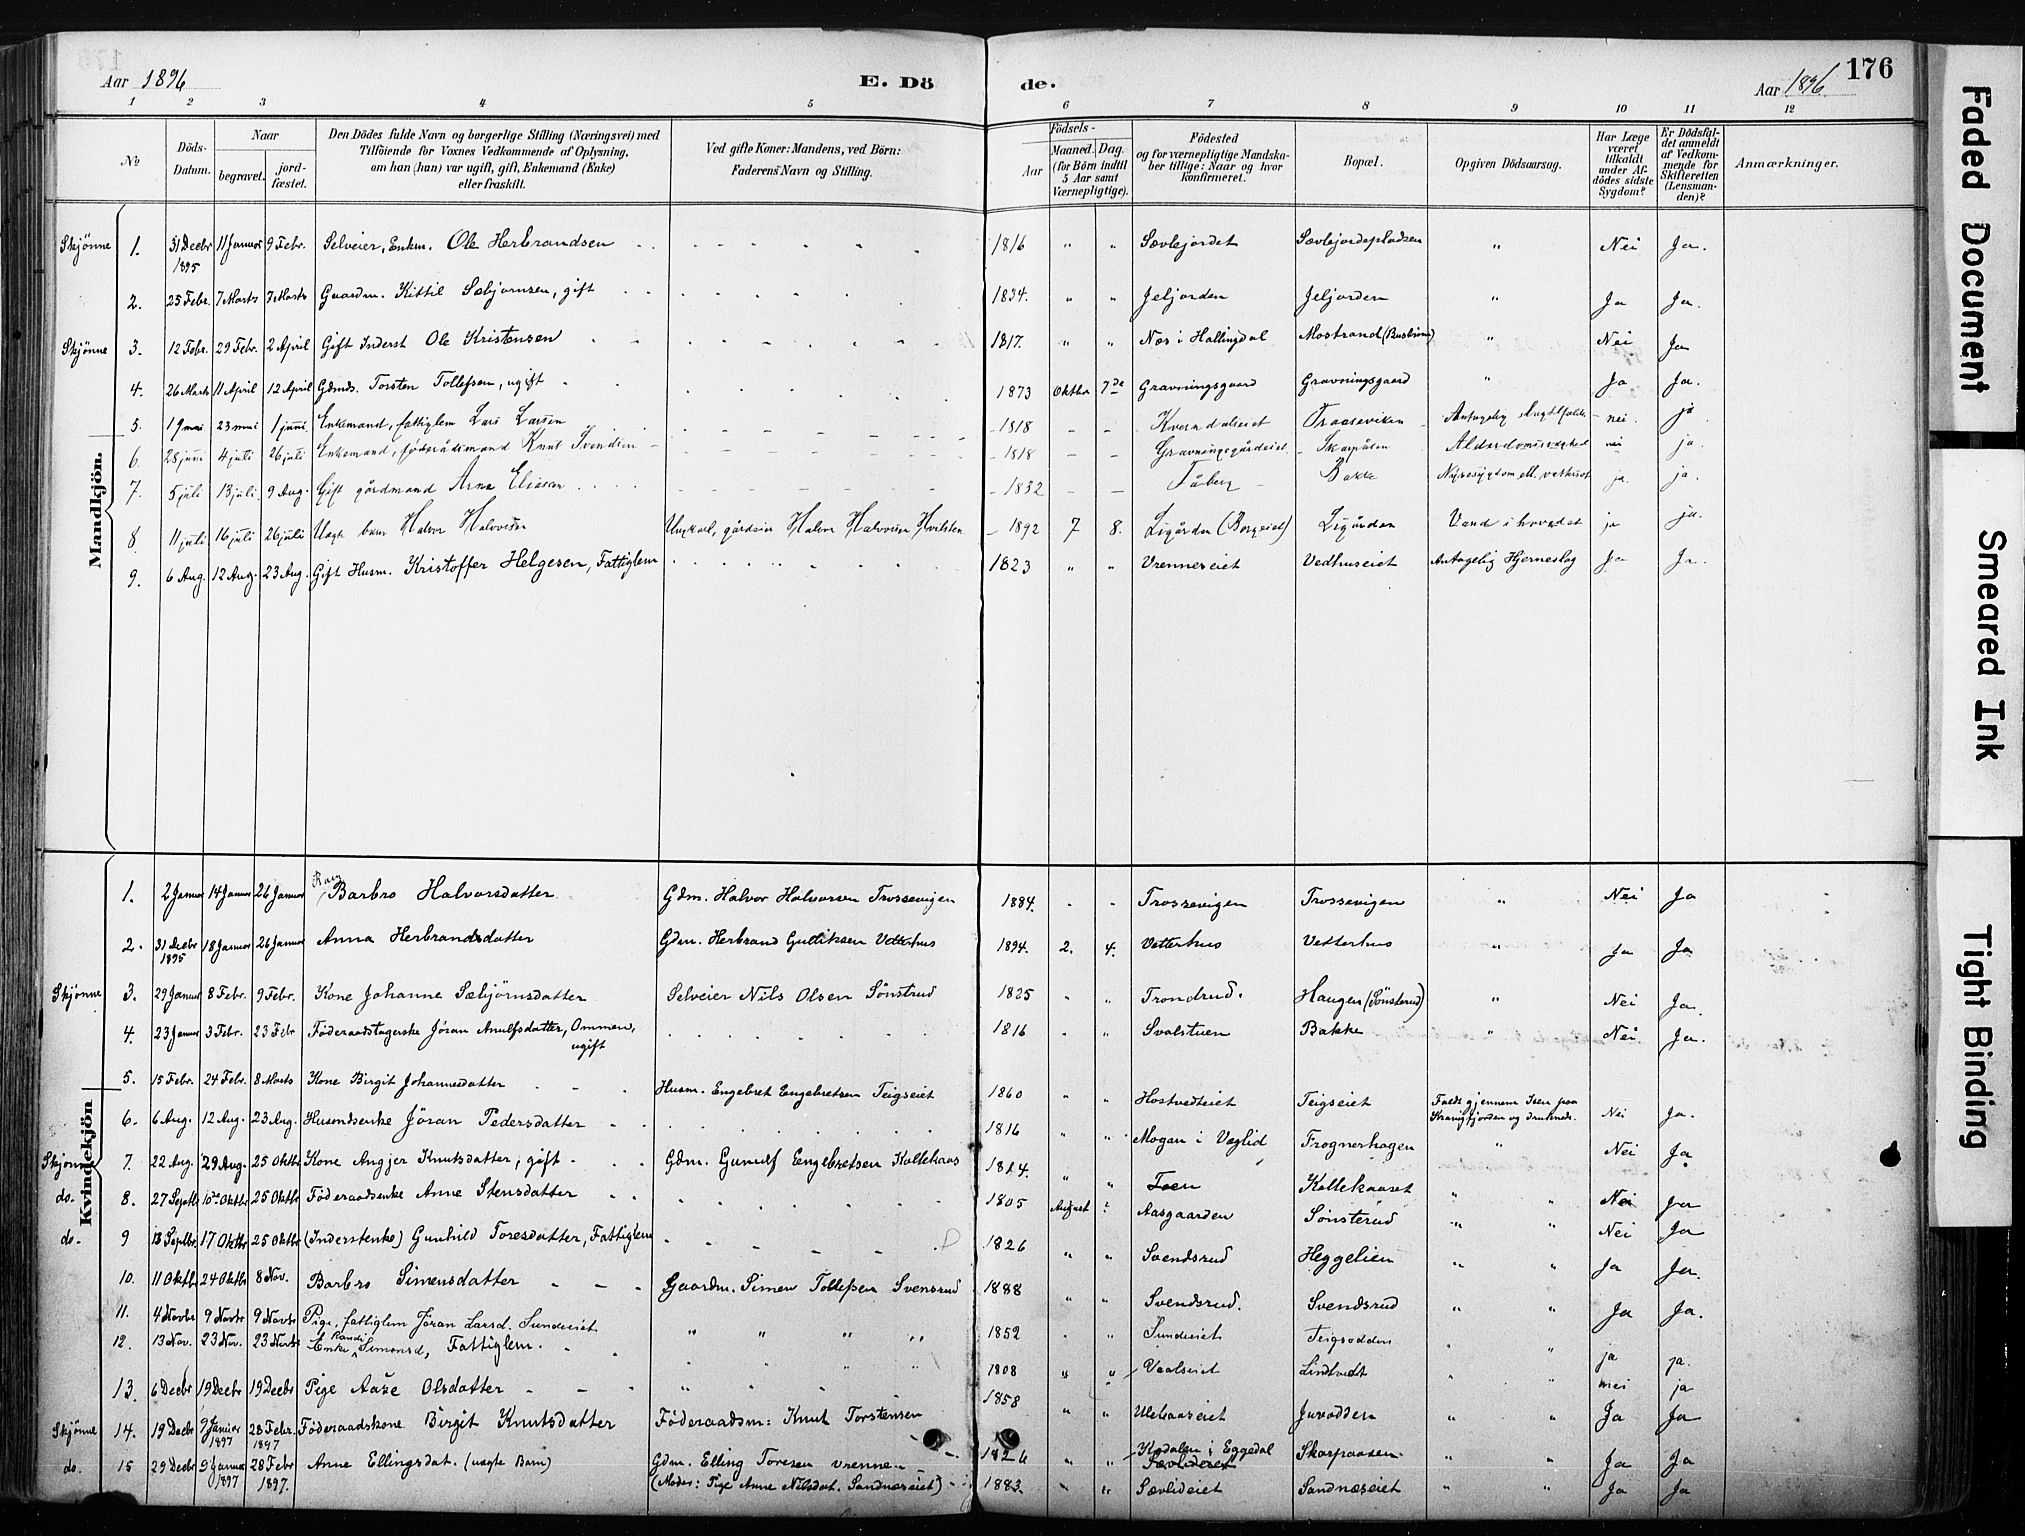 Aar 1896 E. Dö de. Aar 1896 176
1 2 3 4 5 6 7 8 9 10 11 12
No
Döds-Datum.
Naar
begravet.
jord-fæstet.
Den Dödes fulde Navn og borgerlige Stilling (Næringsvei) med
Tilföiende for Voxnes Vedkommende af Oplysning,
om han (hun) var ugift, gift, Enkemand (Enke)
eller fraskilt.
Ved gifte Koner: Mandens, ved Börn:
Faderens Navn og Stilling.
Födsels-
Aar
Maaned. Dag.
(for Börn indtil
5 Aar samt
Værnepligtige).
Födested
og for værnepligtige Mandska-
ber tillige: Naar og hvor
konfirmeret.
Bopæl.
Opgiven Dödsaarsag.
Har Læge
været
tilkaldt
under Af-
dödes sidste
Sygdom?
Er Dödsfal-
det anmeldt
af Vedkom-
mende for
Skifteretten
(Lensman-
den)?
Anmærkninger.
Mandkjön.
Skjønne 1. 31 Decbr 1895 11 Januar 9 Febr. Selveier, Enkm. Ole Herbrandsen 1816 " " Sævlejordet Sævlejordepladsen " Nei Ja.
2. 25 Febr. 7 Marts 7 Marts Gaardm. Kittil Sæbjørnsen, gift 1834. " " Jeljorden Jeljorden " Ja Ja.
Skjønne 3. 12 Febr. 29 Febr. 2 April Gift Inderst Ole Kristensen 1817. " " Næs i Hallingdal Mostrand (Buskerud) " Nei Ja
4. 26 Marts 11 April 12 April Gdmds. Torsten Tollefsen, ugift 1873 Oktbr 7de Gravningsgaard Gravningsgaard " Ja Ja.
5. 19 mai 23 mai 1 juni Enkemand, fattiglem Lars Larsen 1818 Kverndalseiet Traaseviken Antagelig nei. ja
6. 28 juni 4 juli 26 juli Enkemand, föderådsmand Knut Svendsen 1818 Gravningsgårdseiet Skarpåsen Alderdomssvaghed nei ja.
7. 5 juli 13 juli 9 Aug. Gift gårdmand Arne Eliasen 1832 Tåberg Bakke Nyresygdom ja. ja.
8 11 juli 16 juli 26 juli Uægte barn Halvor Halvorsen Ungkarl, gårdsön Halvor Halvorsen Kvilsten 1892 7 8. Ligården (Borgeiet) Ligården Vand i hovedet ja ja.
9. 6 Aug. 12 Aug. 23 Aug. Gift Husm. Kristoffer Helgesen, Fattiglem 1823 " " Vrenneseiet Vedhuseiet Antagelig Hjerneslag Ja Ja.
Kvindekjön
1. 2 Januar 14 Januar 26 Januar Barbro Halvorsdatter Gdm. Halvor Halvorsen Trossevigen 1884. " " Trossevigen Trossevigen " Nei Ja
2. 31 Decbr 1895 18 Januar 26 Januar Anna Herbrandsdatter Gdm. Herbrand Gulliksen Vetterhus 1894. 2. 4. Vetterhus Vetterhus " Ja Ja.
Skjønne 3. 29 Januar 8 Febr. 9 Febr. Kone Johanne Sæbjörnsdatter Selveier Nils Olsen Sönstrud 1825 " " Trondrud. Haugen (Sönsterud) " Nei Ja.
4. 23 Januar 3 Febr. 23 Febr Föderaadstagerske Jöran Arnulfsdatter, Ommen, ugift 1816 " " Svalstuen Bakke " Nei. Ja.
5. 15 Febr. 24 Febr. 8 Marts Kone Birgit Johannesdatter Husm. Engebret Engebretsen Teigseiet 1860 " " Hostvedteiet Teigseiet Faldt gjennem Isen paa Kravigfjorden og druknede. Nei Ja.
6. 6 Aug. 12 Aug. 23 Aug. Husmdsenke Jöran Pedersdatter 1816 " " Mogan i Væglid Frognerhagen " Nei Ja
Skjønne 7. 22 Aug. 29 Aug. 25 Oktbr Kone Angjer Knutsdatter, gift Gdm. Gunulf Eengebretsen Kollekaas 1824. " " Toen Kollekaaset " " Nei Ja
do. 8. 27 Septbr 10de Oktbr 25 Oktbr Föderaadsenke Anne Stensdatter 1805 August ? Aasgaarden Sönsterud " " Nei Ja
do. 9 13 Septbr. 17 Oktbr 25 Oktbr (Inderstenke) Gunhild Toresdatter, Fattiglem 1826 " " Svendsrud Heggelien " " Ja Ja.
10. 11 Oktbr 24 Oktbr 8 Nov. Barbro Simensdatter Gaardm. Simen Tollefsen Svensrud 1888 " " Svendsrud. Svendsrud " " Ja Ja.
11. 4 Novbr 9 Novbr 9 Novbr Pige, fattiglem Jöran Larsd. Sundeeiet " " " " 1852 " " Sundeeiet Teigsodden " " ja ja.
12. 13 Nov. 23 Nov. 23 Novbr Enke Randi Simonsd, Fattiglem. 1808 " " Vaalseiet Lindtvedt " " nei ja
13. 6 Decbr 19 Decbr 19 Decbr Pige Aase Olsdatter 1858 " " Ulekaaseiet Juvodden " " Ja Ja
Skjønne 14. 19 Decbr 9 Januar 1897 28 Febr. 1897 Föderaadskone Birgit Knutsdatter Föderaadsm: Knut Torstensen 1826 " " Kodalen i Eggedal Skarpaasen " " Ja Ja
do. 15 29 Decbr 9 Januar 1897 28 Febr 1897. Anne Ellingsdat. (uægte Barn) Gdm. Elling Toresen Vrennen (Moder: Pige Anne Nilsdat. Sandnæseiet) 1883. " " Sævlideiet Sandnæseiet " " Ja Ja
Faded Document
Smeared Ink
Tight Binding